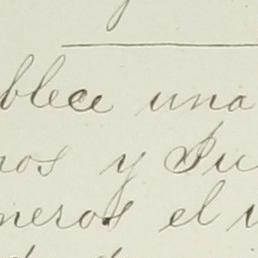 blece una
nos y Ju
neros el